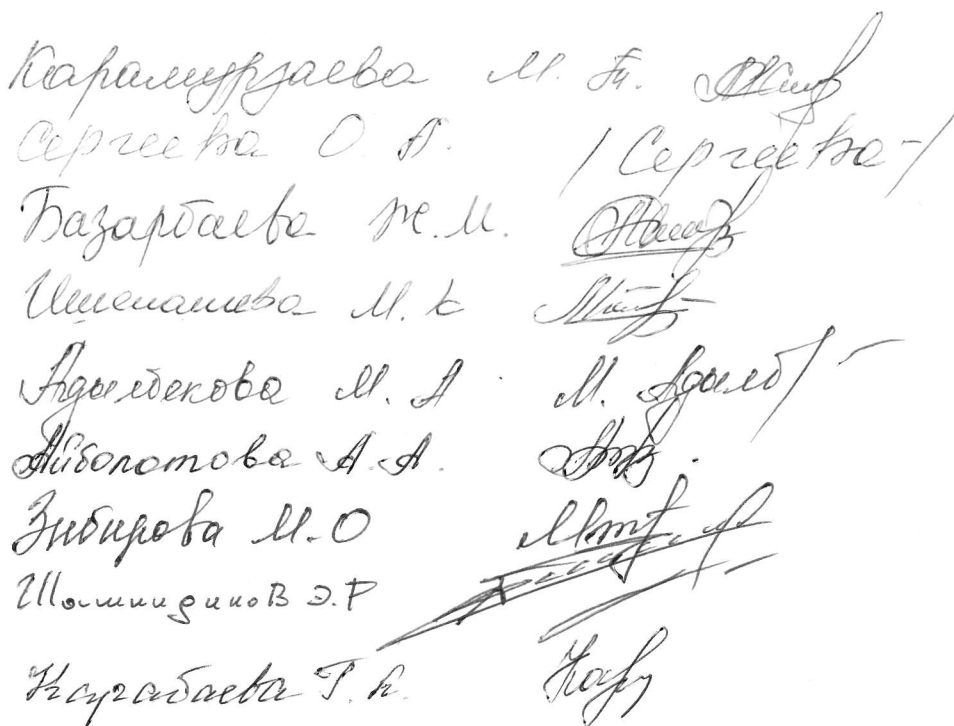 Карамурзаева М.
Сергеева О. А. / Сергеева-/
Базарбаева Ж.М.
Ишенашева М. К
Адылбекова М. А. М. Адылб
Айболотова А. А.
Зибирова М.О
Шамшидинов Э.Р
Карабаева Г. К.